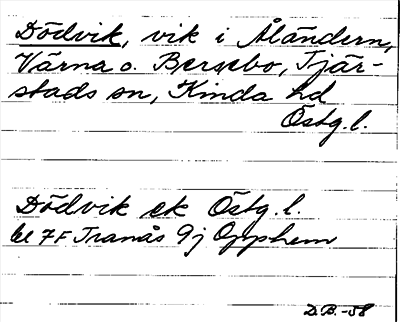 Dödvik, vik i Åländern,
Värna o. Bersebo, Tjär-
stads sn, Kinda hd
Östg. l.
Dödvik ek Östg. l.
bl 7F Tranås 9j Opphem
D.B.-58